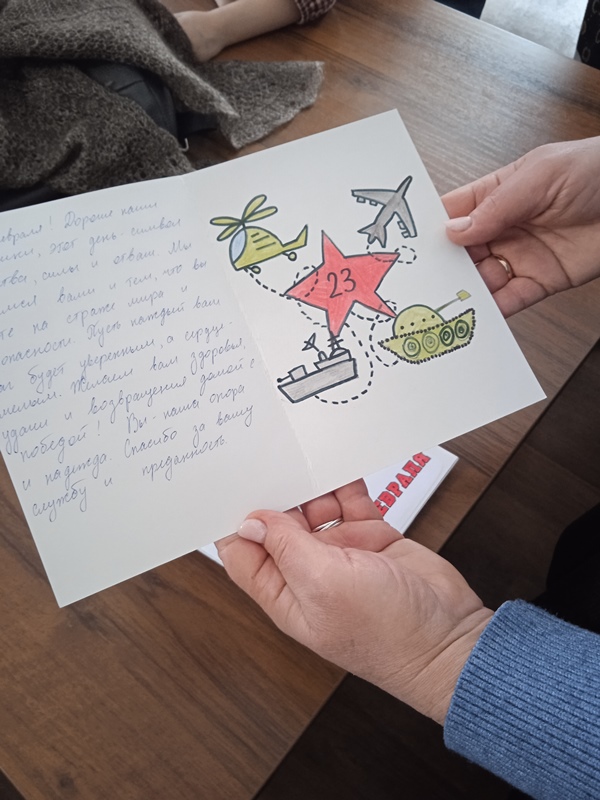 евраля! Дорогие наши
ники, этот день - символ
ства, силы и отваги. Мы
имся вами и тем, что вы
те на страже мира и
опасности. Пусть каждый ваш
аг будет уверенным, а сердце
мелым. Желаем вам здоровья,
удачи и возвращения домой с
победой! Вы - наша опора
и надежда. Спасибо за вашу
службу и преданность.
23
ЕВРАЛЯ